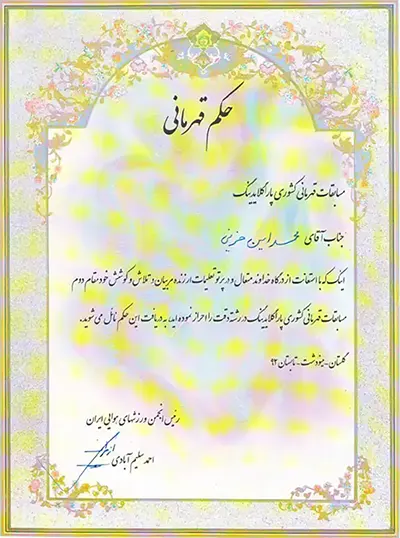 حکم قهرمانی
مسابقات قهرمانی کشوری پاراگلایدینگ
جناب آقای محمد امین حزینی
اینک که با استعانت از درگاه خداوند متعال و در پرتو تعلیمات ارزنده مربیان و تلاش و کوشش خود مقام دوم
مسابقات قهرمانی کشوری پاراگلایدینگ در رشته دقت را احراز نموده اید، به دریافت این حکم نائل می شوید.
گلستان - مینودشت - تابستان ۹۲
رئیس انجمن ورزشهای هوایی ایران
احمد سلیم آبادی